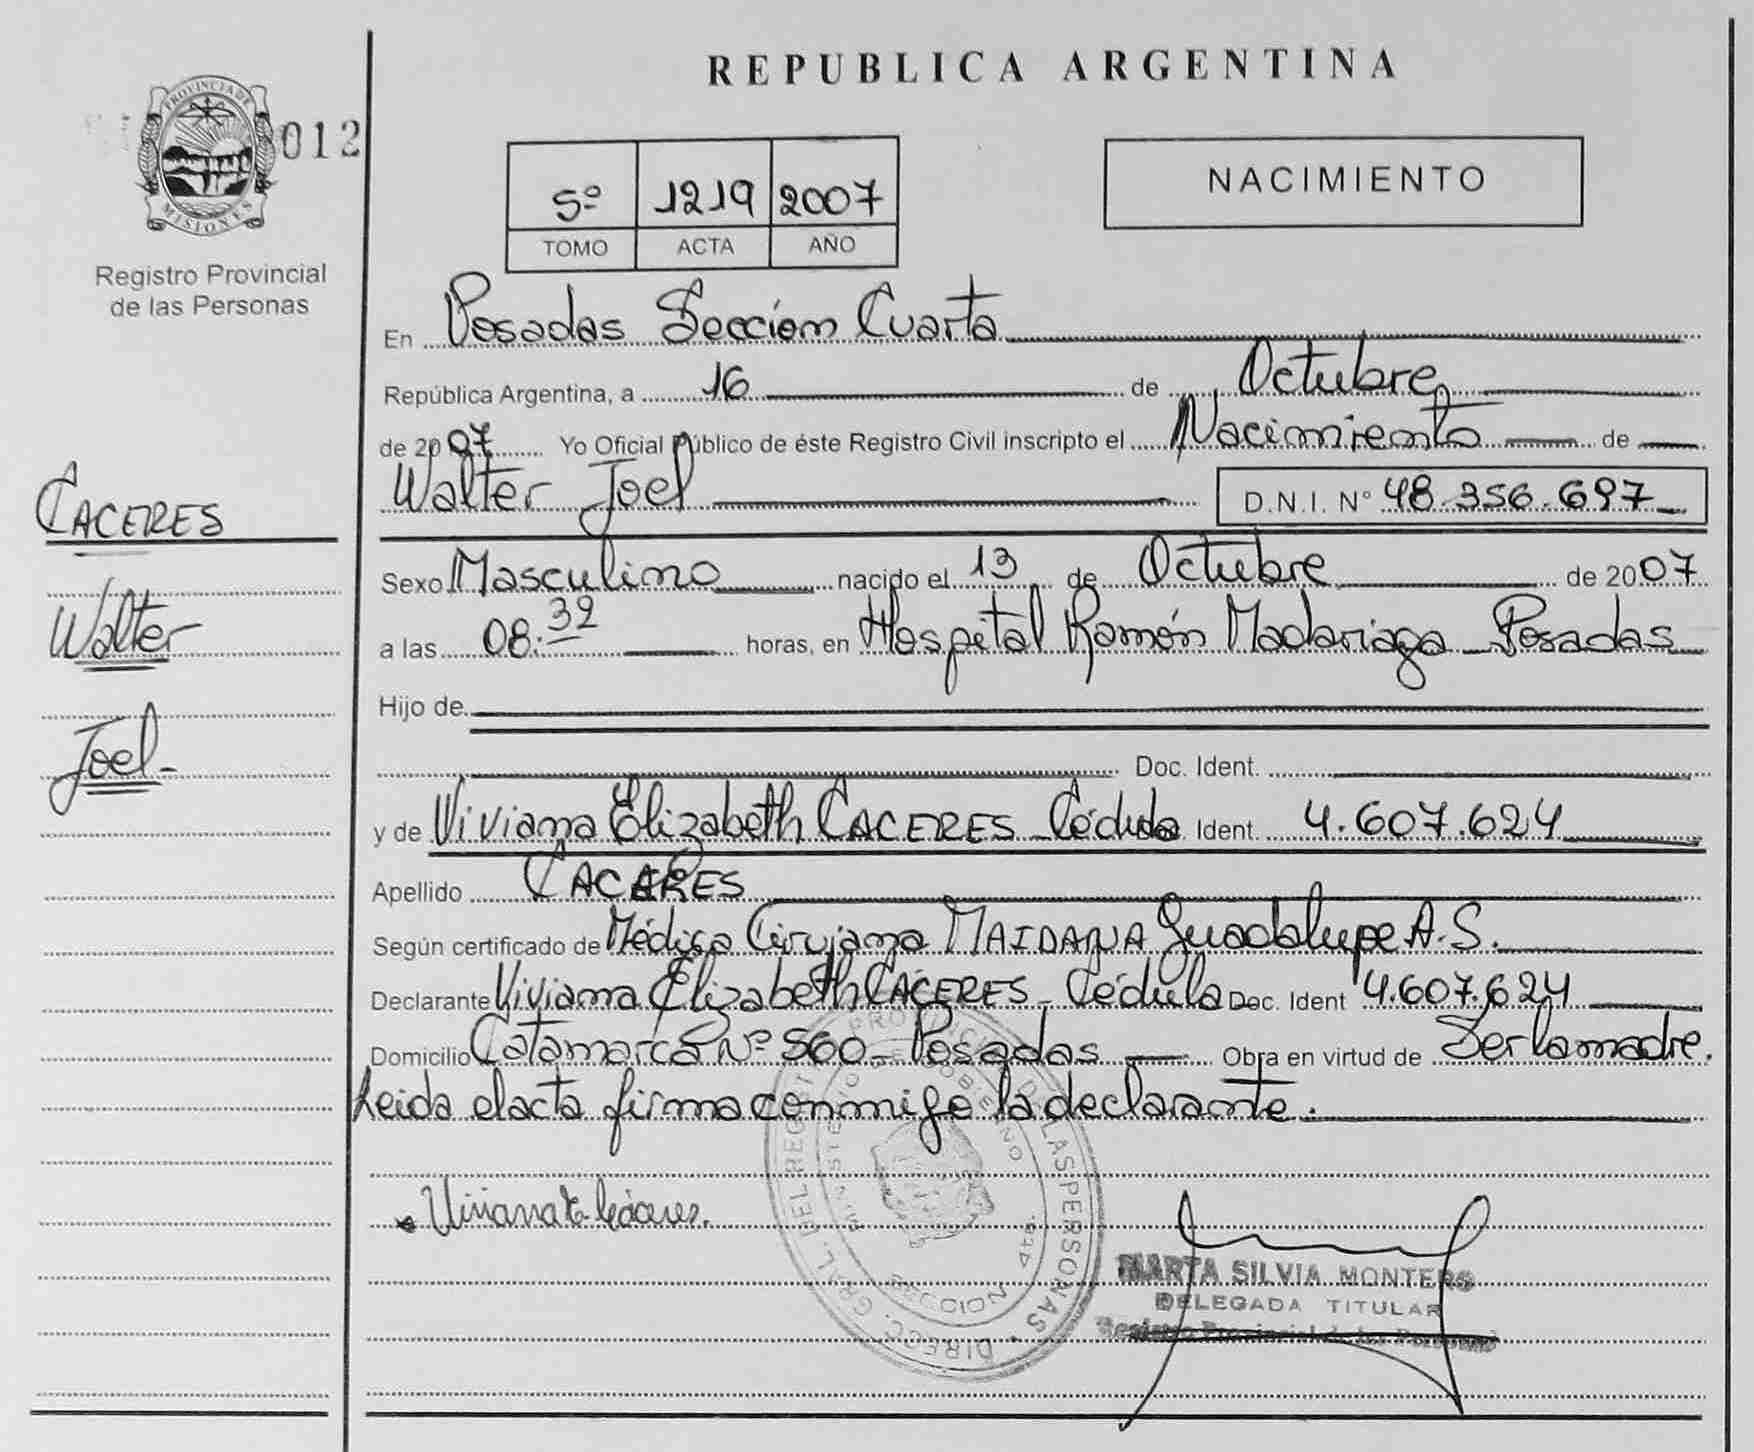 REPUBLICA ARGENTINA
PROVINCIA DE
MISIONES
012
Registro Provincial
de las Personas
5º 1219 2007
TOMO ACTA AÑO
NACIMIENTO
En Posadas Sección Cuarta
República Argentina, a 16 de Octubre
de 2007 Yo Oficial Público de éste Registro Civil inscripto el Nacimiento de
Walter Joel D.N.I. Nº 48.356.697
CACERES
Walter
Joel-
Sexo Masculino nacido el 13 de Octubre de 2007
a las 08:32 horas, en Hospital Ramón Madariaga Posadas
Hijo de
Doc. Ident.
y de Viviana Elizabeth CACERES - Cédula Ident. 4.607.624
Apellido CACERES
Según certificado de Médica Cirujana MAIDANA Guadalupe A.S.
Declarante Viviana Elizabeth CACERES - Cédula Doc. Ident 4.607.624
Domicilio Catamarca Nº 560 - Posadas Obra en virtud de Ser la madre.
Leida el acta firma conmigo la declarante.
Viviana E. Cáceres.
DIRECC. GRAL. DEL REGISTRO PROVINCIAL DE LAS PERSONAS
MINISTERIO DE GOBIERNO
MARTA SILVIA MONTERO
DELEGADA TITULAR
Registro Provincial de las Personas